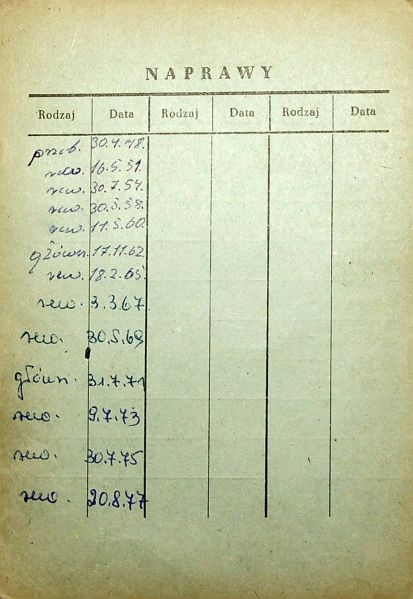 NAPRAWY
Rodzaj Data Rodzaj Data Rodzaj Data
przeb. 30.4.48.
rew. 16.5.51.
rew. 30.7.54.
rew. 30.5.58.
rew. 11.5.60.
główn. 17.11.62
rew. 18.2.65.
rew. 3.3.67
rew. 30.5.69
główn. 31.7.71
rew. 9.7.73
rew. 30.7.75
rew. 20.8.77